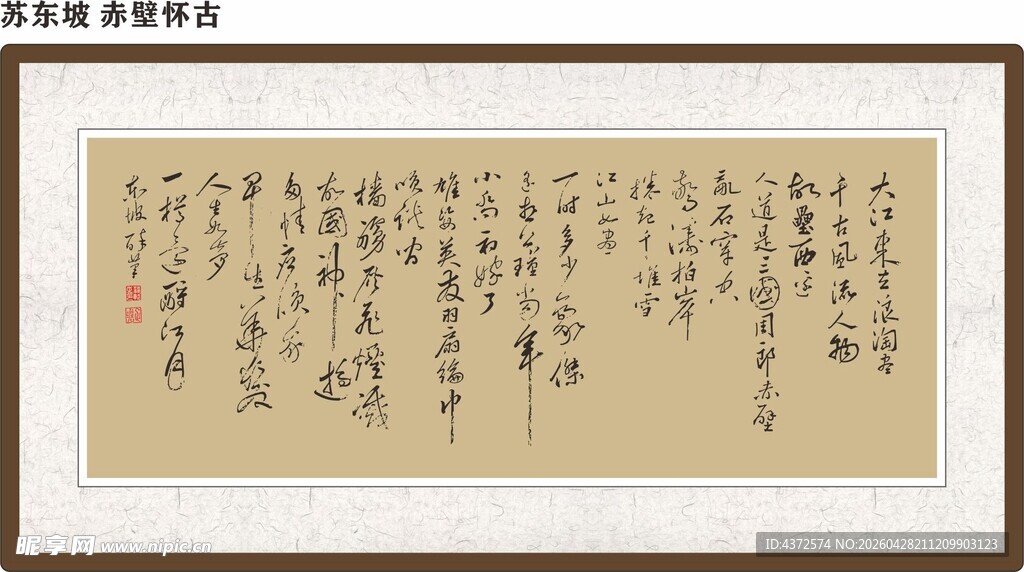 苏东坡 赤壁怀古
大江東去浪淘盡
千古風流人物
故壘西邊
人道是三國周郎赤壁
亂石穿空
驚濤拍岸
捲起千堆雪
江山如畫
一時多少豪傑
遙想公瑾當年
小喬初嫁了
雄姿英發羽扇綸巾
笑談間
檣艣灰飛煙滅
故國神遊
多情應笑我
早生華髮
人生如夢
一樽還酹江月
東坡醉筆
昵享网 www.nipic.cn
ID:4372574 NO:20260428211209903123